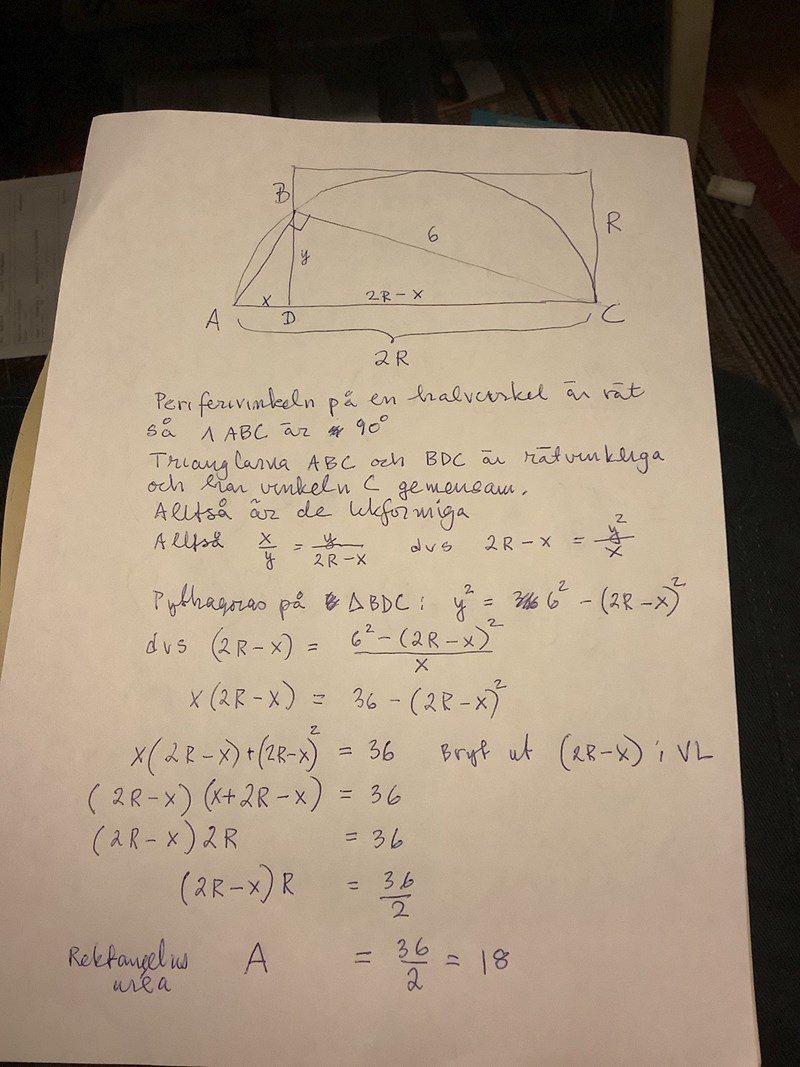 B
6
R
y
x
2R-x
A
D
C
2R
Periferivinkeln på en halvcirkel är rät
så ∧ ABC är 90°
Trianglarna ABC och BDC är rätvinkliga
och har vinkeln C gemensam.
Alltså är de likformiga
Alltså x/y = y/(2R-x) dvs 2R-x = y²/x
Pythagoras på ΔBDC: y² = 6² - (2R-x)²
dvs (2R-x) = (6² - (2R-x)²)/x
x(2R-x) = 36 - (2R-x)²
x(2R-x)+(2R-x)² = 36 Bryt ut (2R-x) i VL
(2R-x)(x+2R-x) = 36
(2R-x)2R = 36
(2R-x)R = 36/2
Rektangelns A = 36/2 = 18
area